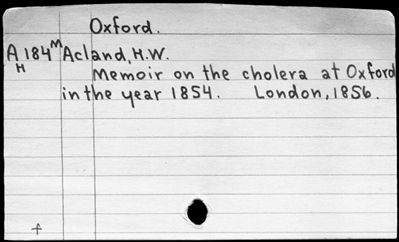 Oxford.
A 184 M Acland, H.W.
H
Memoir on the cholera at Oxford
in the year 1854. London, 1856.